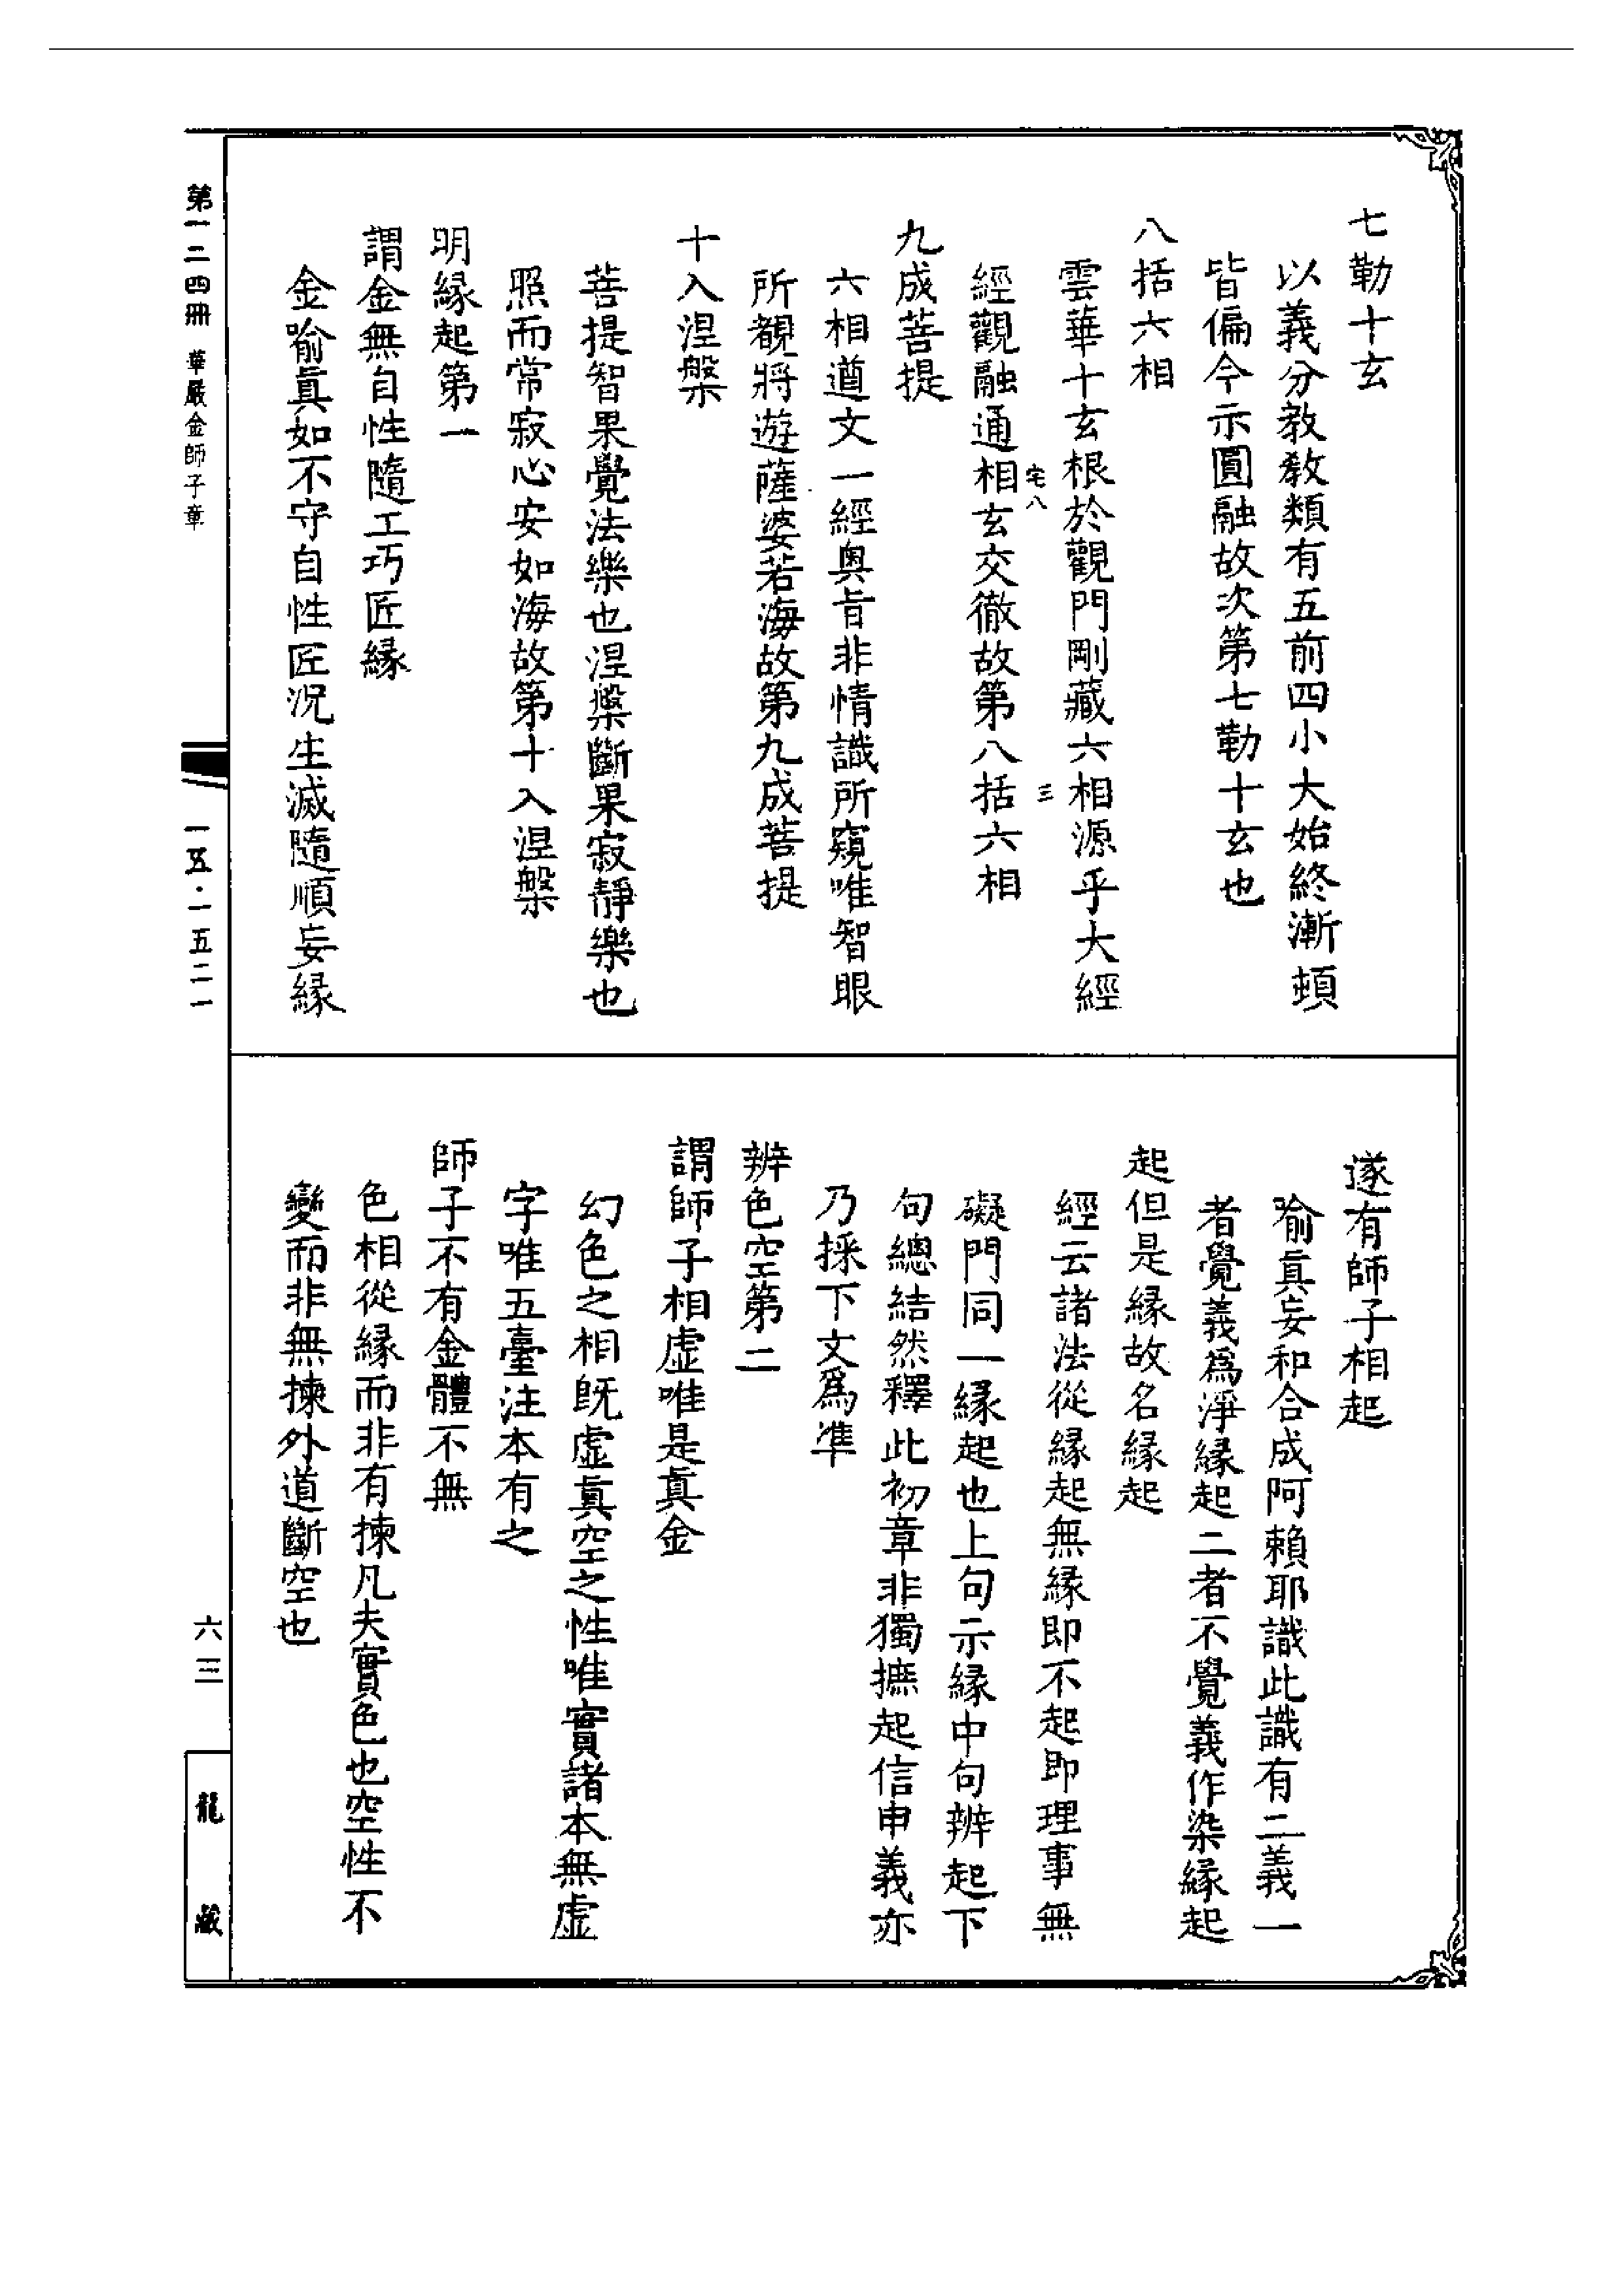 七勒十玄
以義分教教類有五前四小大始終漸頓
皆偏今示圓融故次第七勒十玄也
八括六相
雲華十玄根於觀門剛藏六相源乎大經
宅八
三
經觀融通相玄交徹故第八括六相
九成菩提
六相遒文一經奧旨非情識所窺唯智眼
所覩將遊薩婆若海故第九成菩提
十入涅槃
菩提智果覺法樂也涅槃斷果寂靜樂也
照而常寂心安如海故第十入涅槃
明緣起第一
謂金無自性隨工巧匠緣
金喻真如不守自性匠況生滅隨順妄緣
遂有師子相起
喻真妄和合成阿賴耶識此識有二義一
者覺義為淨緣起二者不覺義作染緣起
起但是緣故名緣起
經云諸法從緣起無緣即不起即理事無
礙門同一緣起也上句示緣中句辨起下
句總結然釋此初章非獨摭起信申義亦
乃採下文為準
辨色空第二
謂師子相虛唯是真金
幻色之相既虛真空之性唯實諸本無虛
字唯五臺注本有之
師子不有金體不無
色相從緣而非有揀凡夫實色也空性不
變而非無揀外道斷空也
第一二四冊 華嚴金師子章
一五五·一五二一
六三
龍藏